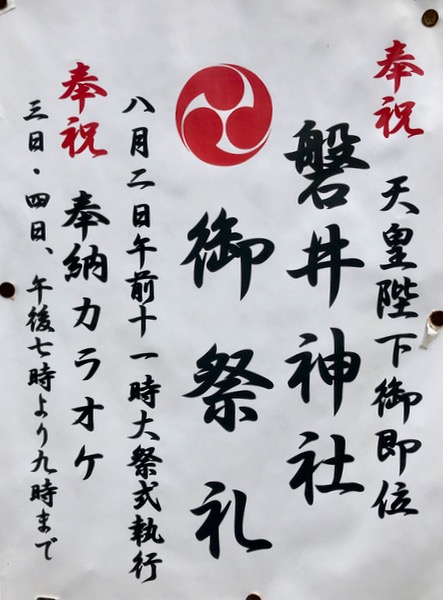 奉祝 天皇陛下御即位
磐井神社
御祭礼
八月二日午前十一時大祭式執行
奉祝 奉納カラオケ
三日・四日、午後七時より九時まで